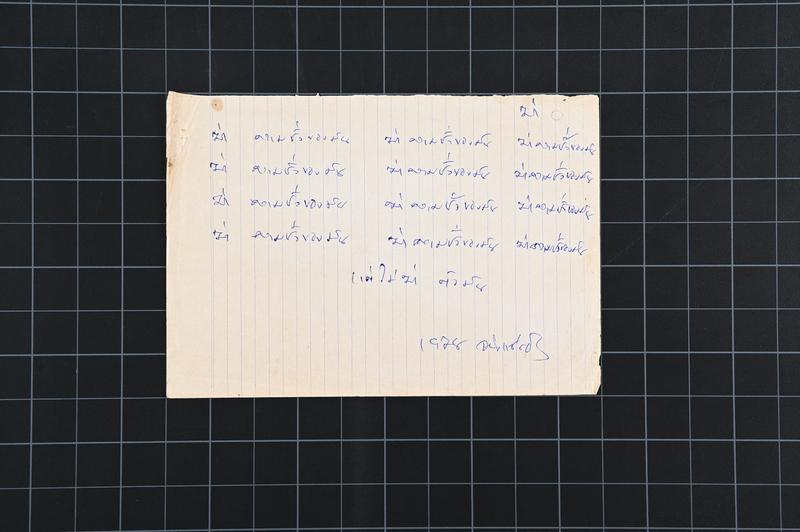 ฆ่า
ฆ่า ความชั่วของมัน ฆ่าความชั่วของมัน ฆ่าความชั่วของมัน
ฆ่า ความชั่วของมัน ฆ่าความชั่วของมัน ฆ่าความชั่วของมัน
ฆ่า ความชั่วของมัน ฆ่าความชั่วของมัน ฆ่าความชั่วของมัน
ฆ่า ความชั่วของมัน ฆ่าความชั่วของมัน ฆ่าความชั่วของมัน
แต่ไม่ฆ่า ตัวมัน